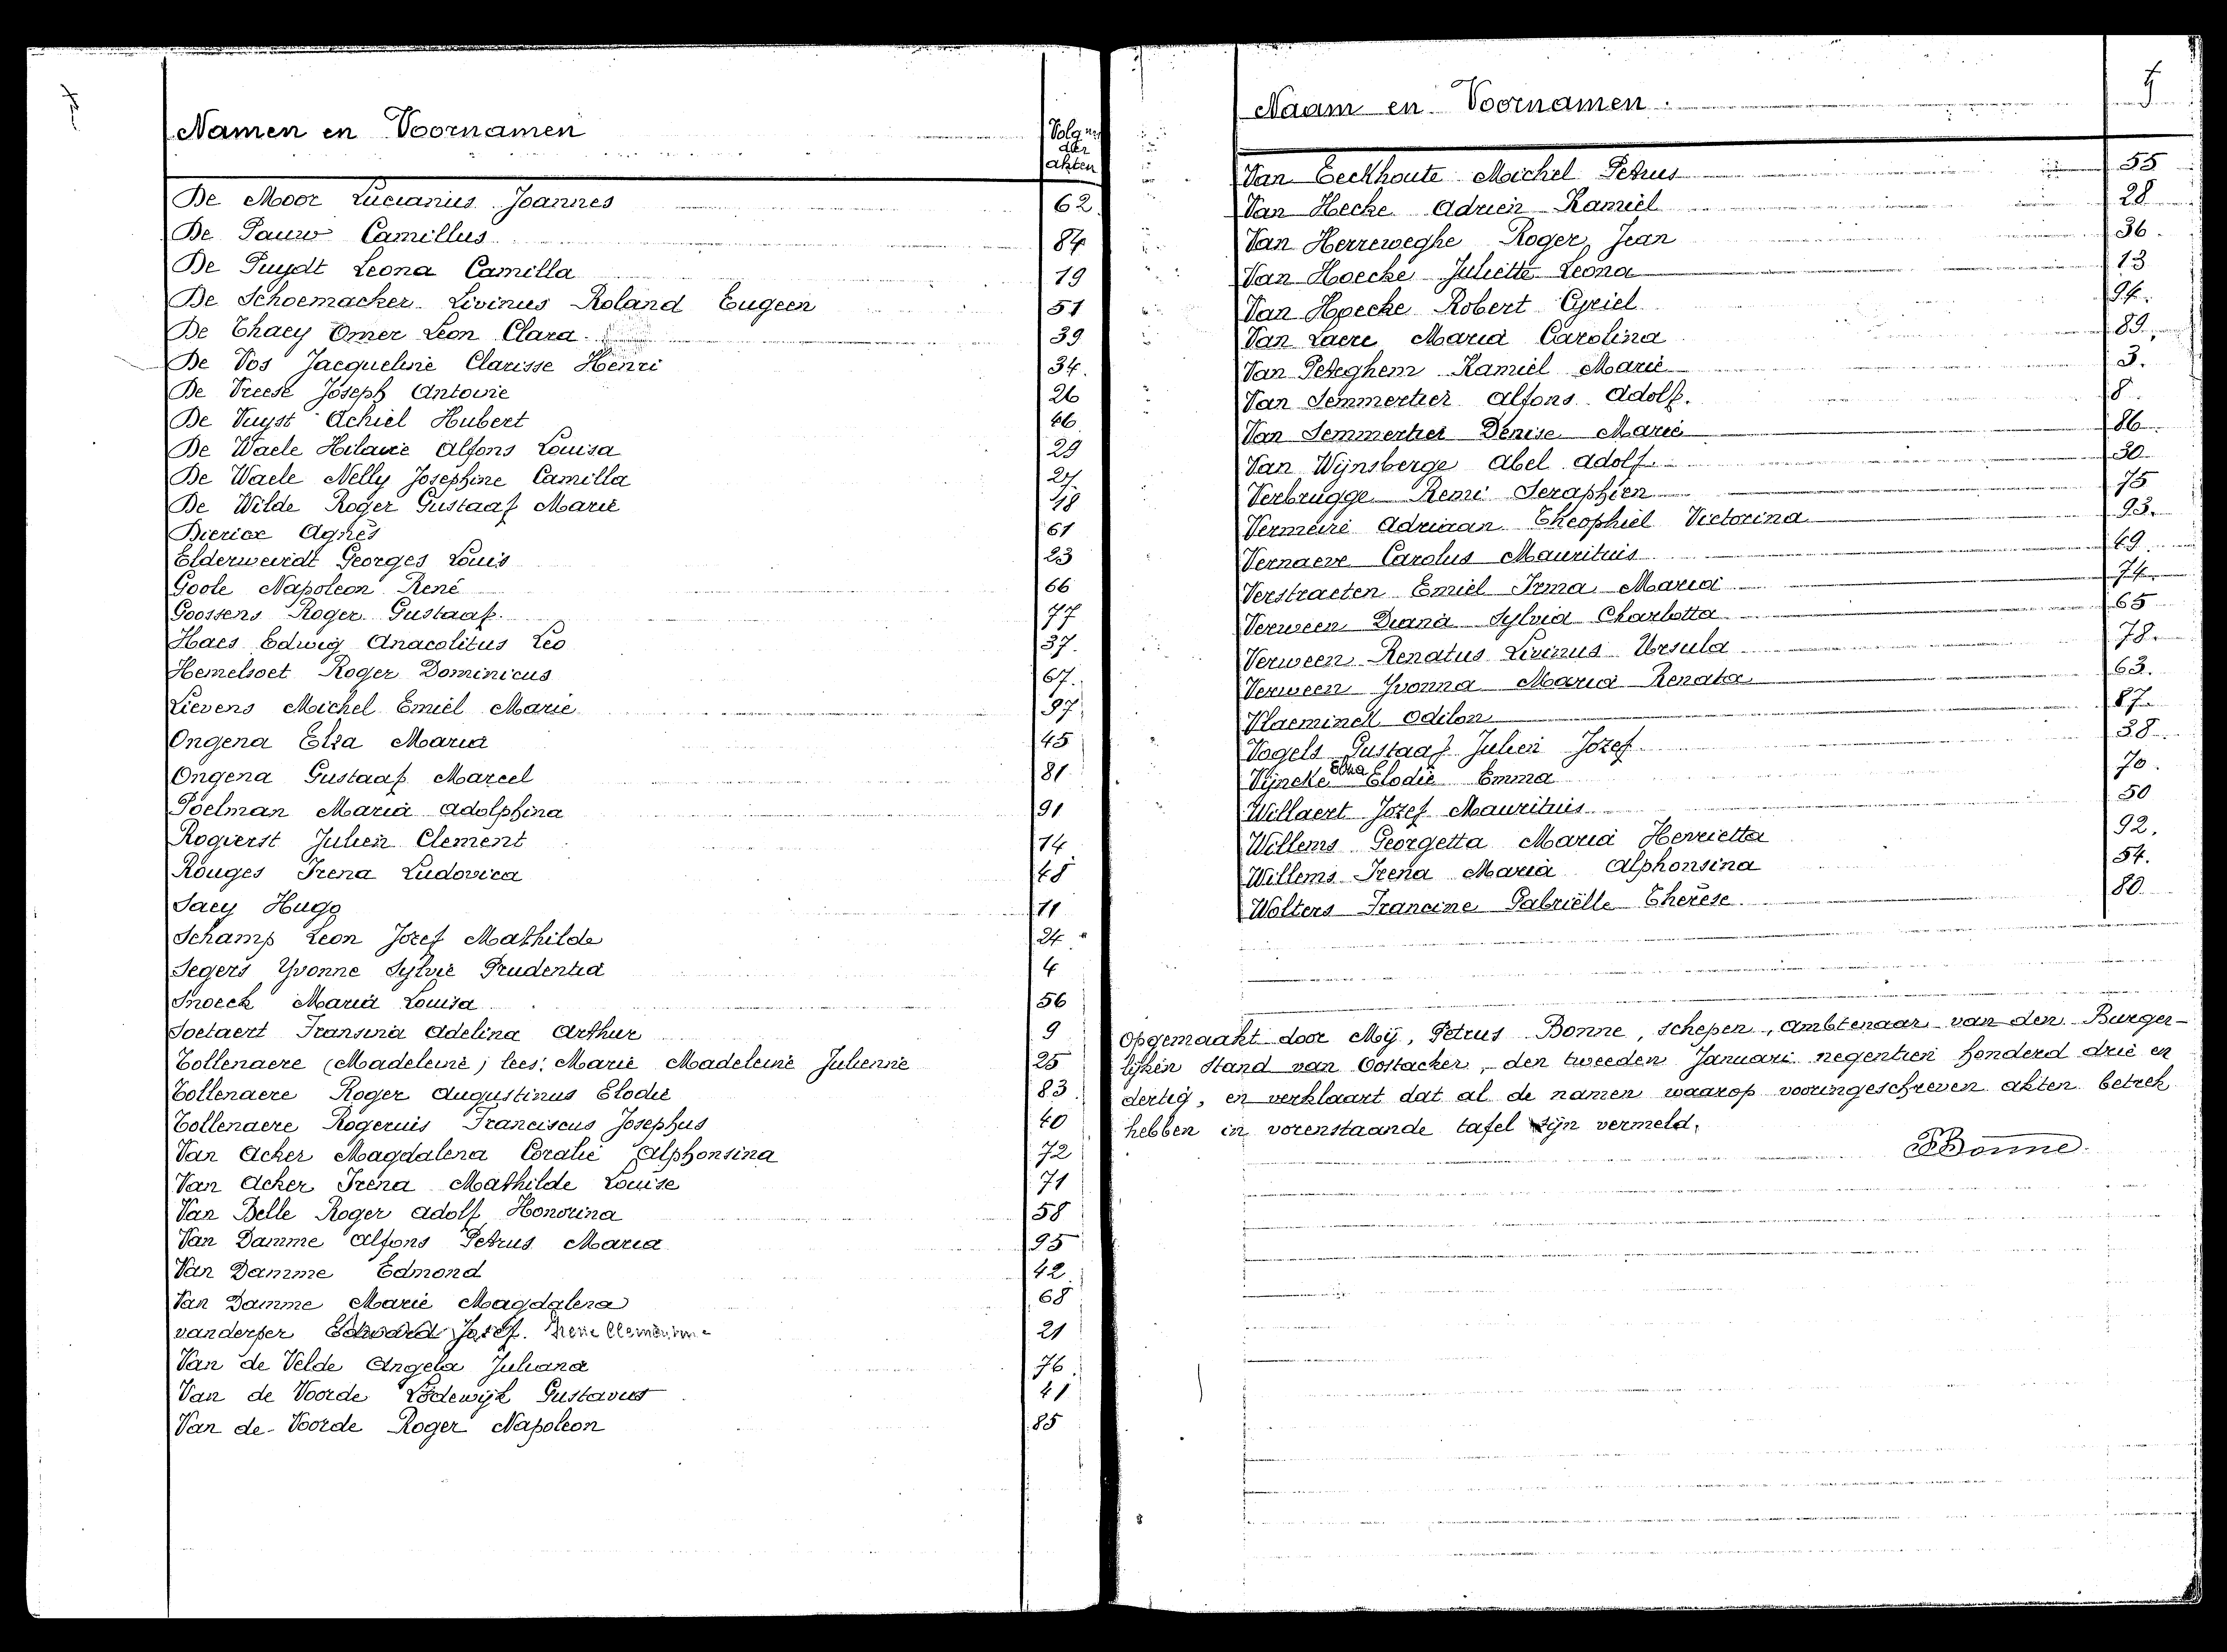 Namen en Voornamen Volgnrs der akten
De Moor Lucianus Joannes 62
De Pauw Camillus 84
De Puydt Leona Camilla 19
De Schoemacker Livinus Roland Eugeen 51
De Thaey Omer Leon Clara 39
De Vos Jacqueline Clarisse Henri 34.
De Vreese Joseph Antoine 26
De Vuyst Achiel Hubert 46
De Waele Hilaire Alfons Louisa 29
De Waele Nelly Josephine Camilla 27.
De Wilde Roger Gustaaf Marie 18
Diericx Agnès 61
Elderweirdt Georges Louis 23
Goole Napoleon René 66
Goossens Roger Gustaaf. 77
Haes Edwig Anacolitus Leo 37.
Hemelsoet Roger Dominicus 67.
Lievens Michel Emiel Marie 97
Ongena Elza Maria 45
Ongena Gustaaf Marcel 81
Poelman Maria Adolphina 91
Rogierst Julien Clement 14
Rouges Irena Ludovica 48
Saey Hugo 11
Schamp Leon Jozef Mathilde 24
Segers Yvonne Sylvie Prudentia 4
Snoeck Maria Louisa 56
Soetaert Fransina Adelina Arthur 9
Tollenaere (Madeleine) lees: Marie Madeleine Julienne 25
Tollenaere Roger Augustinus Elodie 83
Tollenaere Rogerius Franciscus Josephus 40
Van Acker Magdalena Coralie Alphonsina 72
Van Acker Irena Mathilde Louise 71
Van Belle Roger Adolf Honorina 58
Van Damme Alfons Petrus Maria 95
Van Damme Edmond 42
Van Damme Marie Magdalena 68
Edward Jozef. Irene 21
Van de Velde Angela Juliana 76
Van de Voorde Lodewijk Gustavus 41
Van de Voorde Roger Napoleon 85
Naam en Voornamen.
Van Eeckhoute Michel Petrus 55
Van Hecke Adrien Kamiel 28
Van Herreweghe Roger Jean 36.
Van Hoecke Juliette Leona 13
Van Hoecke Robert Cyriel 94.
Van Laere Maria Carolina 89
Van Peteghem Kamiel Marie 3.
Van Semmertier Alfons Adolf. 8
Van Semmertier Denise Marie 86
Van Wijnsberge Abel Adolf. 30
Verbrugge Remi Seraphien 75
Vermeire Adriaan Theophiel Victorina 93.
Vernaeve Carolus Mauritius 49
Verstraeten Emiel Irma Maria 74
Verween Diana Sylvia Charlotta 65
Verween Renatus Livinus Ursula 78.
Verween Yvonna Maria Renata 63.
Vlaeminck Odilon 87.
Vogels Gustaaf Julien Jozef 38
Elodie Emma 70
Vijncke
Willaert Jozef Mauritius 50
Willems Georgetta Maria Henrietta 92.
Willems Irena Maria Alphonsina 54.
Wolters Francine Gabriëlle Therèse 80
Opgemaakt door Mij, Petrus Bonne, schepen, ambtenaar van den Burger-
lijken stand van Oostacker, den tweeden Januari negentien honderd drie en
dertig, en verklaart dat al de namen waarop vooringeschreven akten betrek
hebben in vorenstaande tafel zijn vermeld.
PBonne.